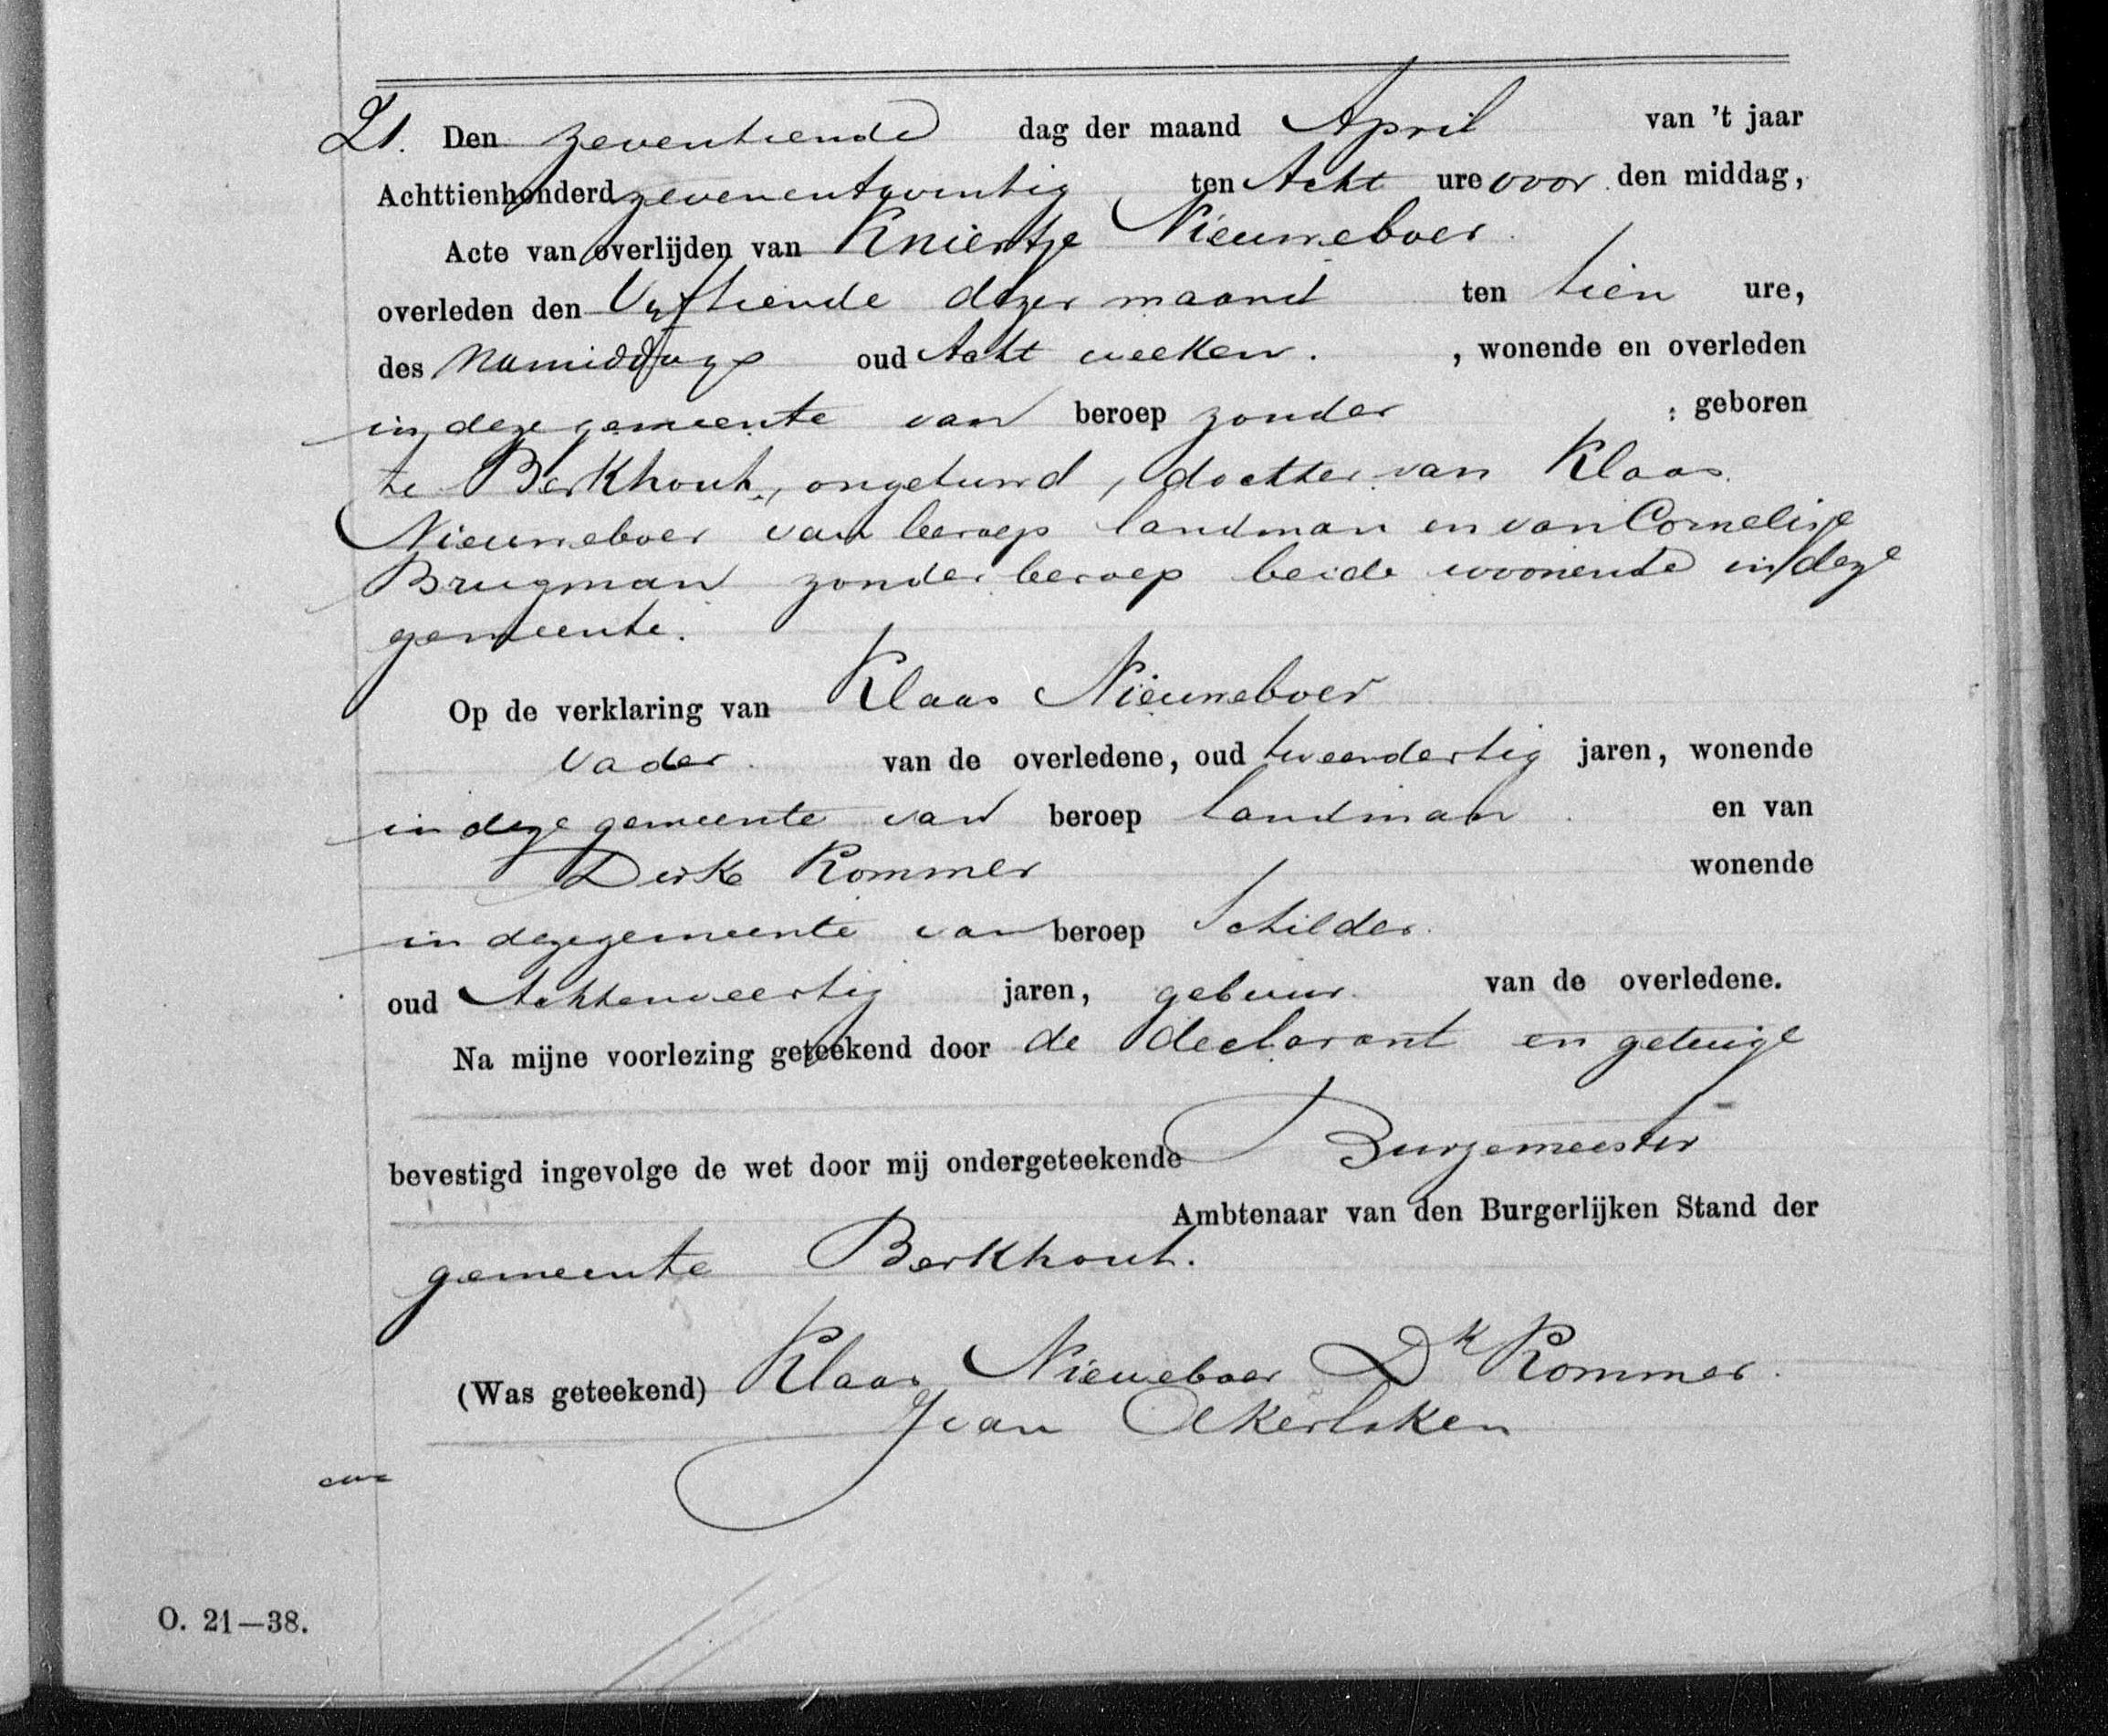 21. Den zeventiende dag der maand April van 't jaar
Achttienhonderd zevenentwintig ten Acht ure voor den middag,
Acte van overlijden van Kniertje Nieuweboer
overleden den Vyftiende dezer maand ten tien ure,
des Namiddags oud Acht weeken. , wonende en overleden
in deze gemeente van beroep zonder : geboren
te Berkhout, ongetuwd, dochter van Klaas
Nieuweboer van beroep landman en van Cornelisje
Brugman zonder beroep beide woonende in deze
gemeente.
Op de verklaring van Klaas Nieuweboer
Vader van de overledene, oud tweendertig jaren, wonende
in deze gemeente van beroep landman en van
Dirk Kommer wonende
in deze gemeente van beroep Schilder
oud Achtenveertig jaren, gebuur van de overledene.
Na mijne voorlezing geteekend door de declarant en getuige
bevestigd ingevolge de wet door mij ondergeteekende Burgemeester
Ambtenaar van den Burgerlijken Stand der
gemeente Berkhout.
(Was geteekend) Klaas Nieuweboer Dk Kommer
Jvan Akerlaken
O. 21—38.